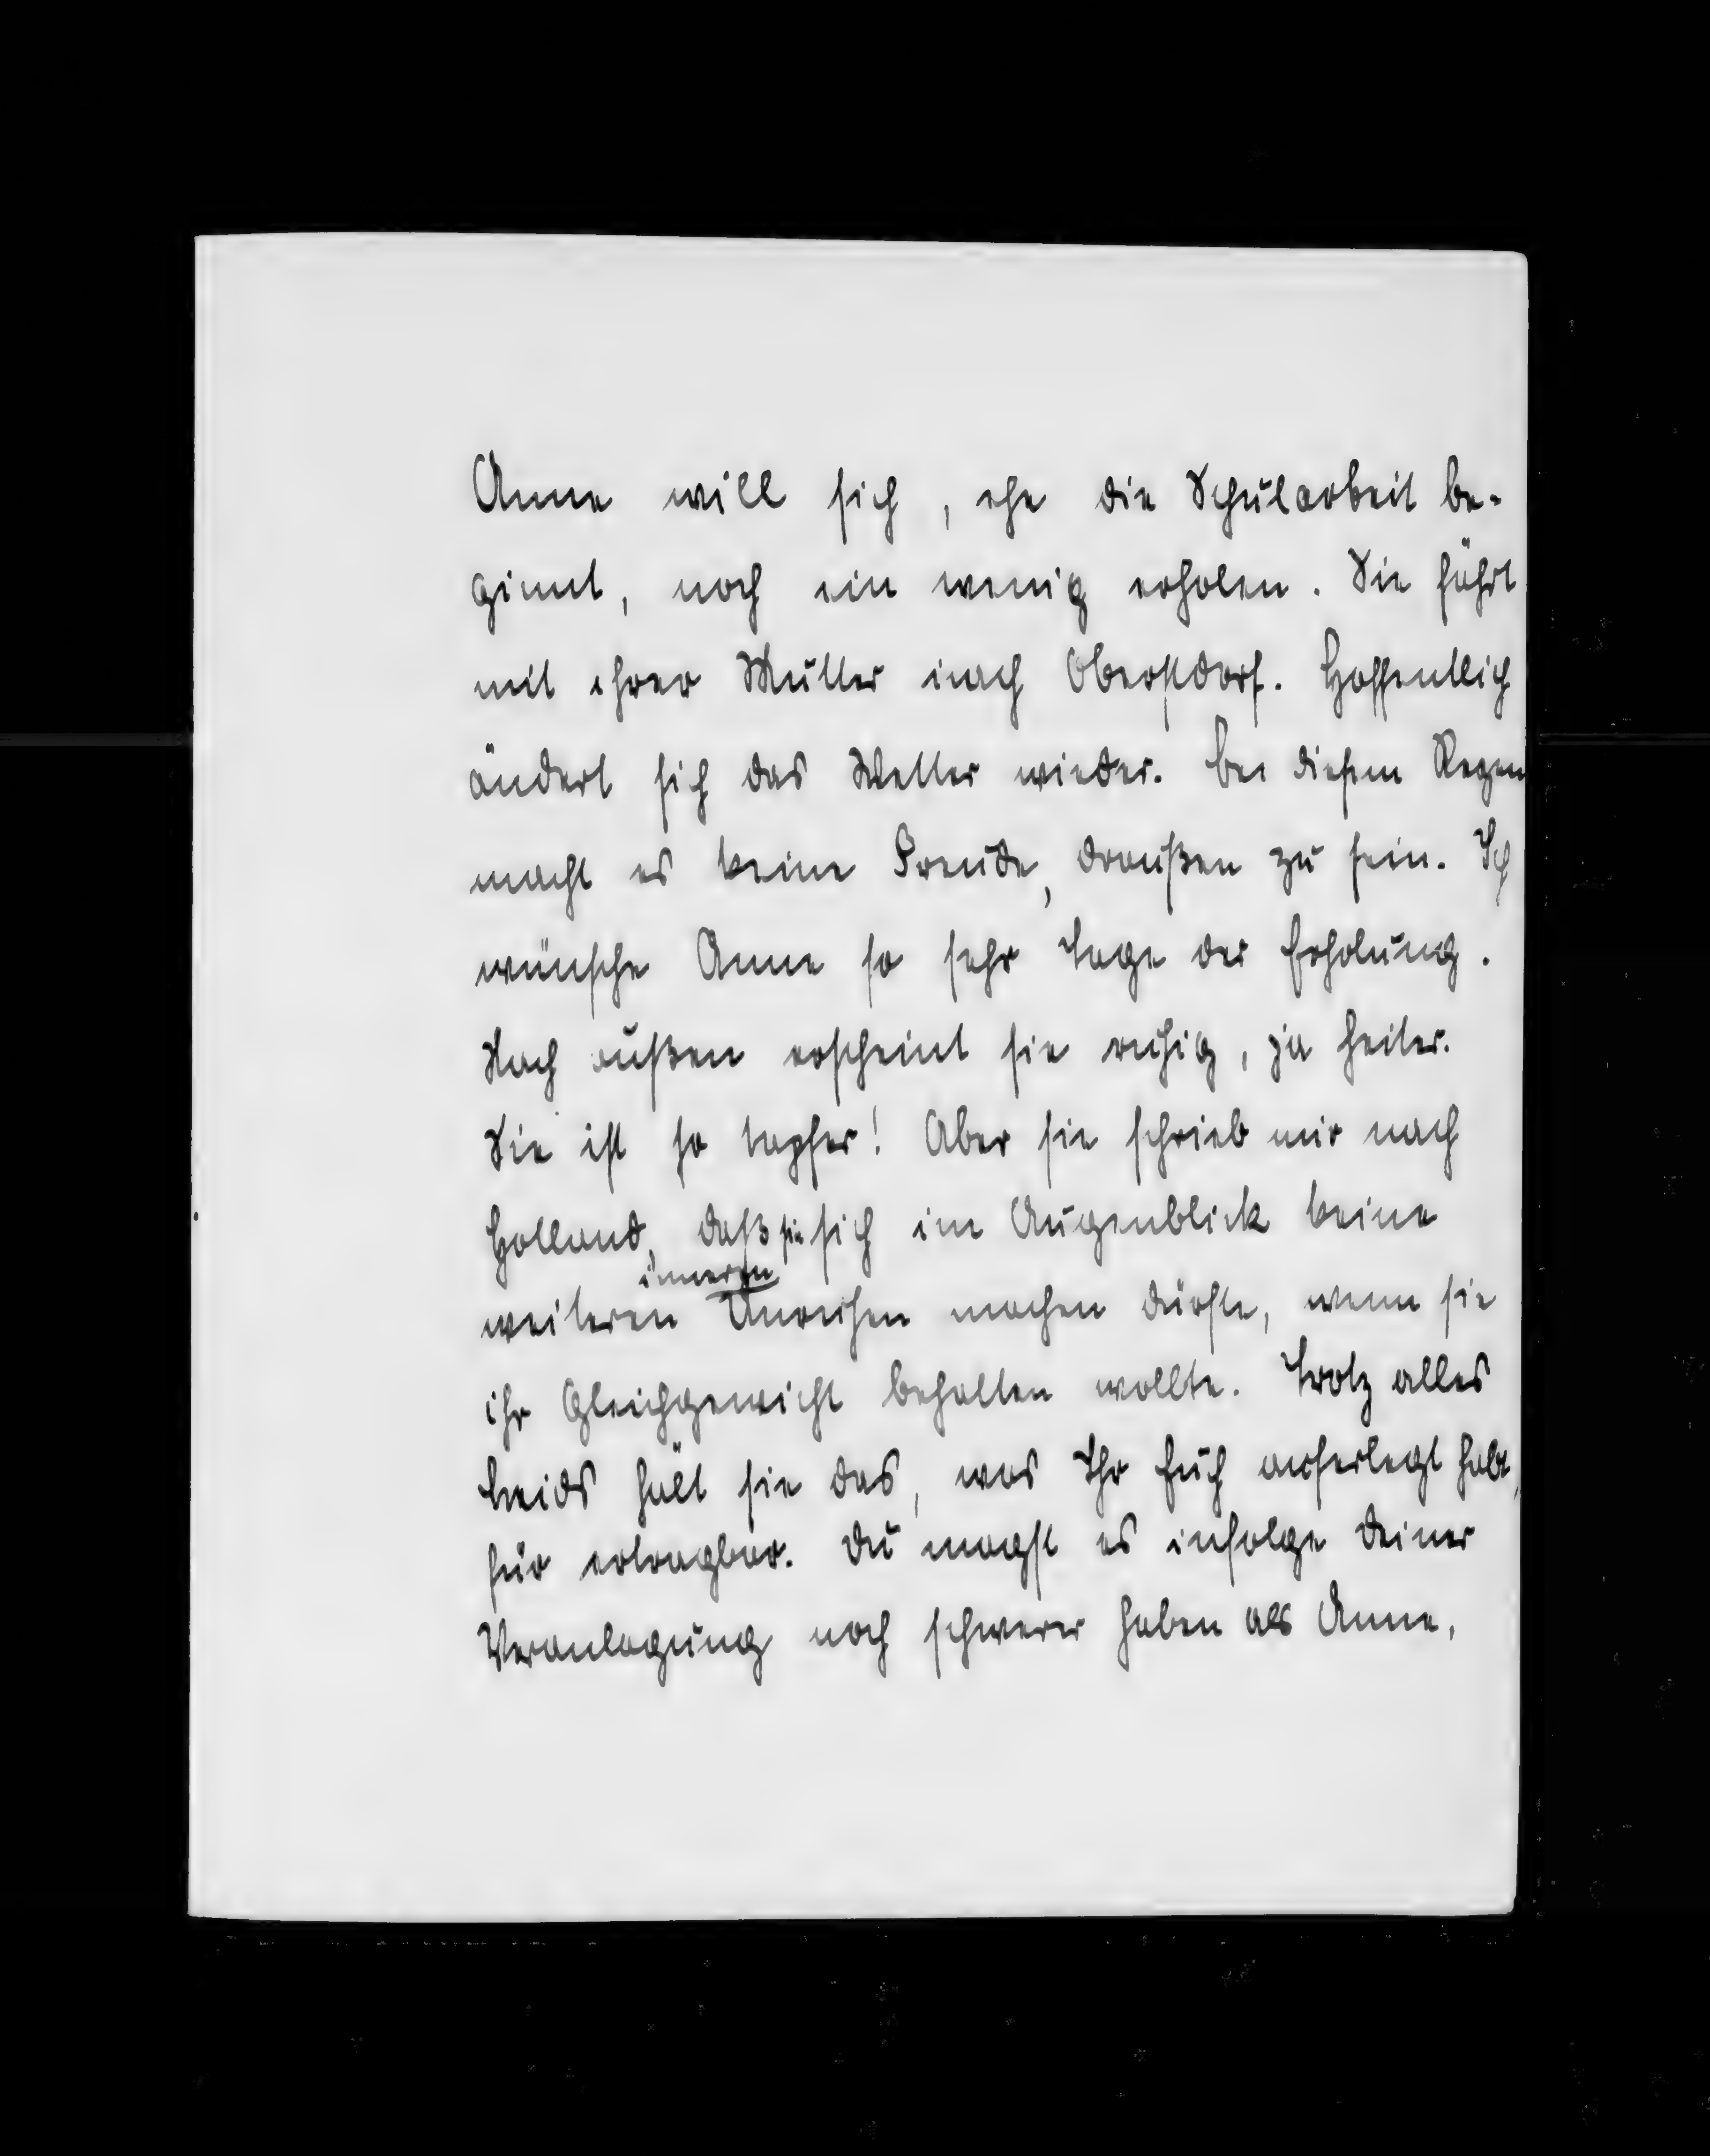 Anne will sich, ehe die Schularbeit be-
ginnt, noch ein wenig erholen. Sie fährt
mit ihrer Mutter nach Oberstdorf. Hoffentlich
ändert sich das Wetter wieder. Bei diesem Regen
macht es keine Freude, draußen zu sein. Ich
wünsche Anne so sehr Tage der Erholung.
Nach außen erscheint sie ruhig, ja heiter.
Sie ist so tapfer! Aber sie schrieb mir nach
Holland, daß sie sich im Augenblick keine
inneren
weiteren Unruhen machen dürfte, wenn sie
ihr Gleichgewicht behalten wollte. Trotz alles
Leids hält sie das, was Ihr Euch auferlegt habt,
für ertragbar. Du magst es infolge Deiner
Veranlagung noch schwerer haben als Anne,